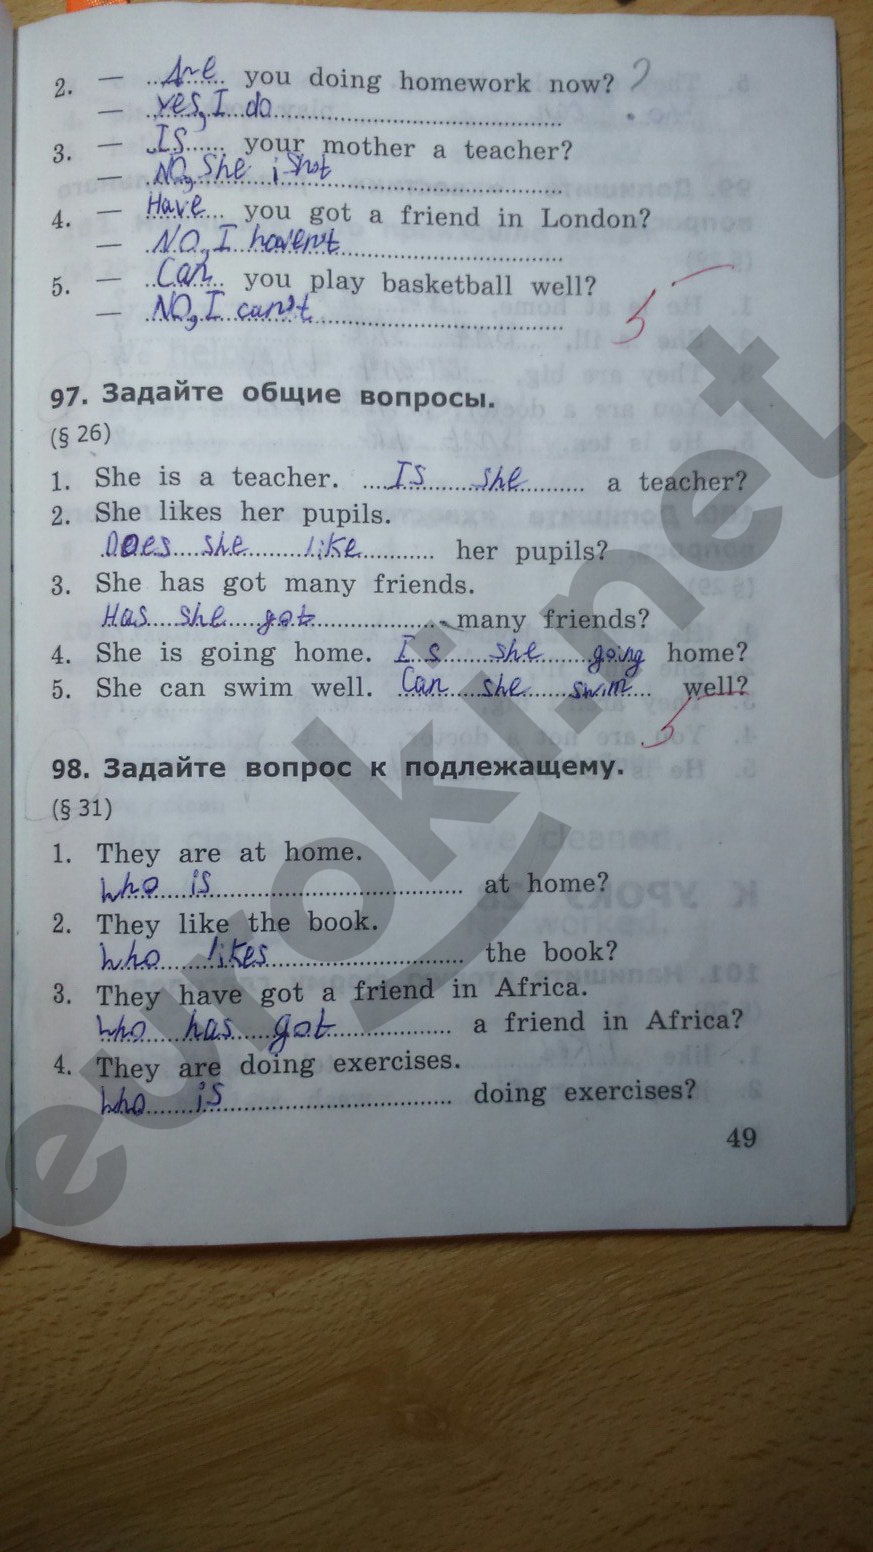 2. — Are you doing homework now?
— Yes, I do
3. — Is your mother a teacher?
— No, she isnot
4. — Have you got a friend in London?
— No, I haven't
5. — Can you play basketball well?
— No, I can't
5-
97. Задайте общие вопросы.
(§ 26)
1. She is a teacher. Is she a teacher?
2. She likes her pupils.
Does she like her pupils?
3. She has got many friends.
Has she got many friends?
4. She is going home. Is she going home?
5. She can swim well. Can she swim well?
5
98. Задайте вопрос к подлежащему.
(§ 31)
1. They are at home.
Who is at home?
2. They like the book.
Who likes the book?
3. They have got a friend in Africa.
Who has got a friend in Africa?
4. They are doing exercises.
Who is doing exercises?
49
euroki.net